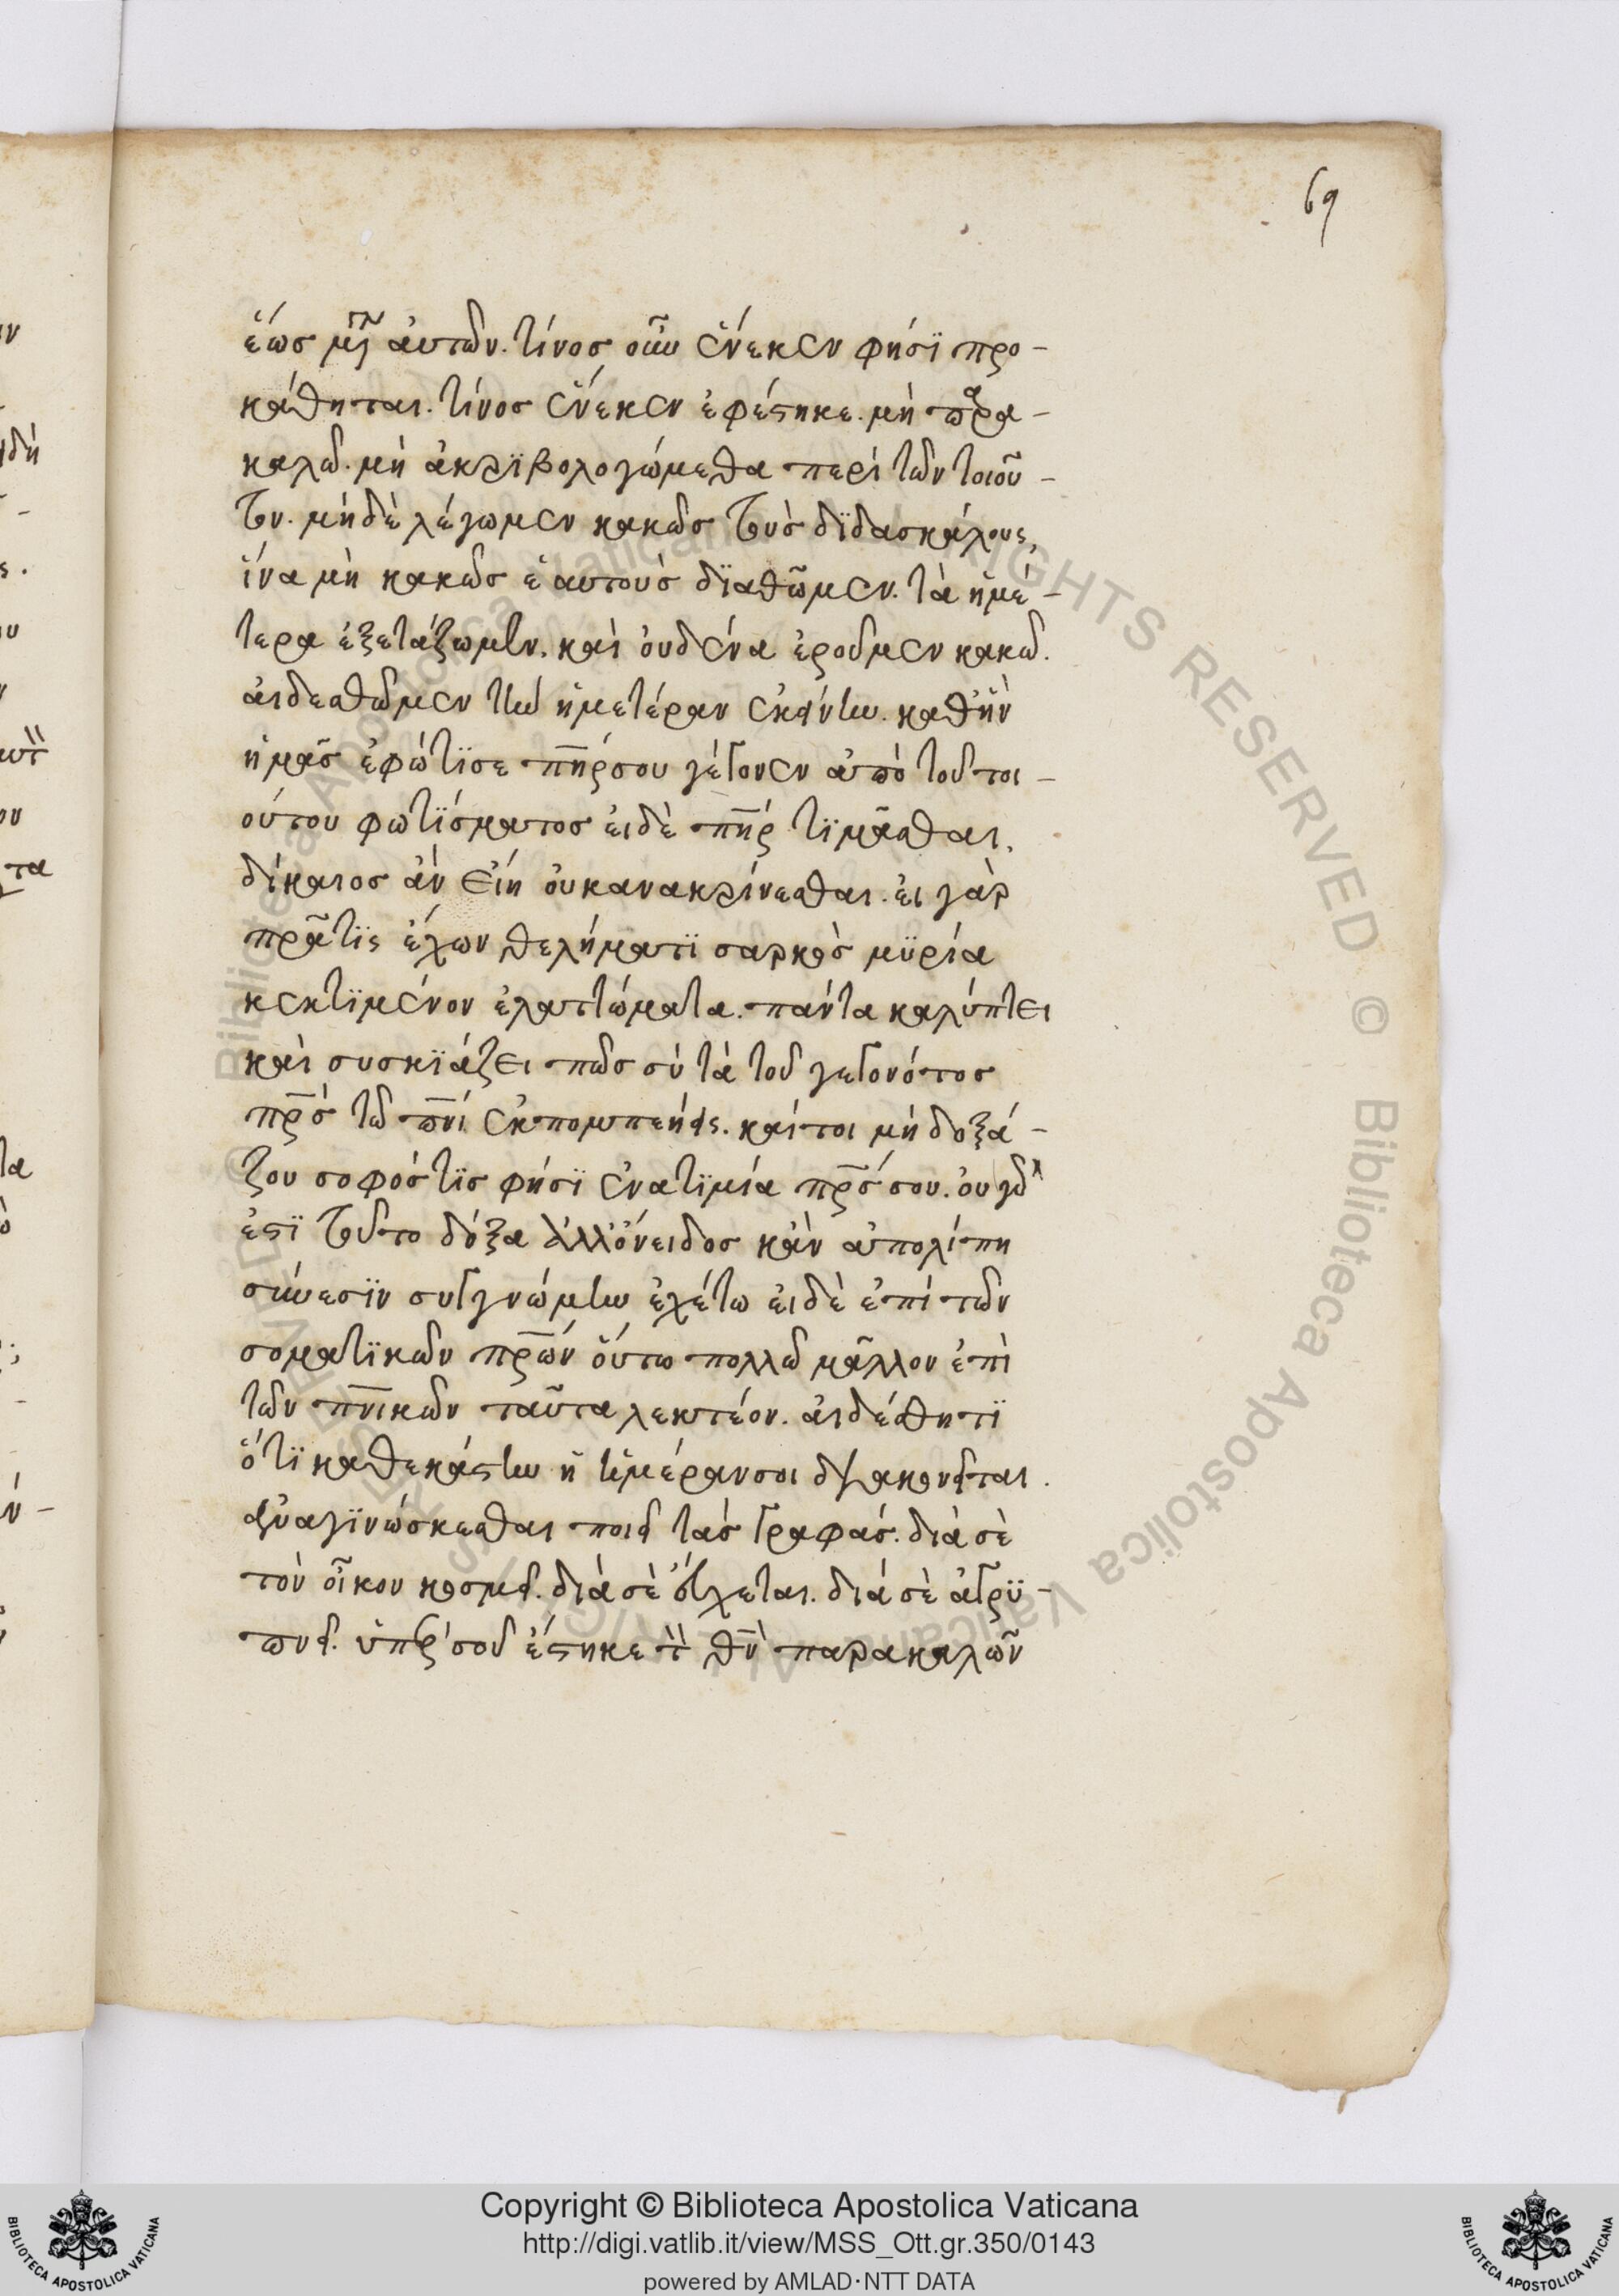 69
ἕως μῆ αυτῶν. τίνος οὖν ἕνεκεν φησὶ προ-
κάθηται. τίνος ἕνεκεν ἐφέστηκε. μὴ παρα-
καλῶ. μὴ ἀκριβολογώμεθα περὶ τῶν τοιού-
των. μηδὲ λέγωμεν κακῶς τοὺς διδασκάλους,
ἵνα μὴ κακῶς ἑαυτοὺς διαθῶμεν. τὰ ἡμέ-
τερα ἐξετάζωμεν. καὶ ουδένα ἐροῦμεν κακῶ.
αἰδεσθῶμεν τὴν ἡμετέραν ἐκείνην. καθ ἣν
ἡμᾶς ἐφώτισε πηρ σου γέγονεν ἀπὸ τοῦ τοι-
ούτου φωτίσματος εἰ δὲ πηρ τιμᾶσθαι.
δίκαιος ἂν εἴη οὐκ ανακρίνεσθαι. εἰ γὰρ
πρα τὶς ἔχων θελήματι σαρκὸς μυρία
κεκτιμένον ἐλαττώματα. πάντα καλύπτει
καὶ συσκιάζει πῶς σὺ τὰ τοῦ γεγονότος
πρς τῶ πνι ἐκπομπεύεις. καίτοι μὴ δοξά-
ζου σοφός τις φησὶ ἐν ατιμία πρς σου. οὐ γὰρ
ἐστὶ τοῦτο δόξα ἀλλ ὄνειδος κὰν ἀπολίπη
σύνεσιν συγγνώμην ἐχέτω εἰ δὲ ἐπὶ τῶν
σοματικῶν πρων οὕτω πολλῶ μᾶλλον ἐπὶ
τῶν πνικῶν ταῦτα λεκτέον. αἰδέσθητι
ὅτι καθεκάστην ἡ ἡμέραν σοι διακονεῖται.
ἀναγινώσκεσθαι ποιεῖ τὰς γραφάς. διὰ σὲ
τὸν οἶκον κοσμεῖ. διὰ σὲ εὔχεται. διὰ σὲ ἀγρυ-
πνεῖ. ὑπὲρ σοῦ ἕστηκε τ θν παρακαλῶν
© Biblioteca Apostolica Vaticana ALL RIGHTS RESERVED © Biblioteca Apostolica Vaticana ALL RIGHTS RESERVED
Copyright © Biblioteca Apostolica Vaticana
http://digi.vatlib.it/view/MSS_Ott.gr.350/0143
powered by AMLAD·NTT DATA
BIBLIOTECA APOSTOLICA VATICANA
BIBLIOTECA APOSTOLICA VATICANA